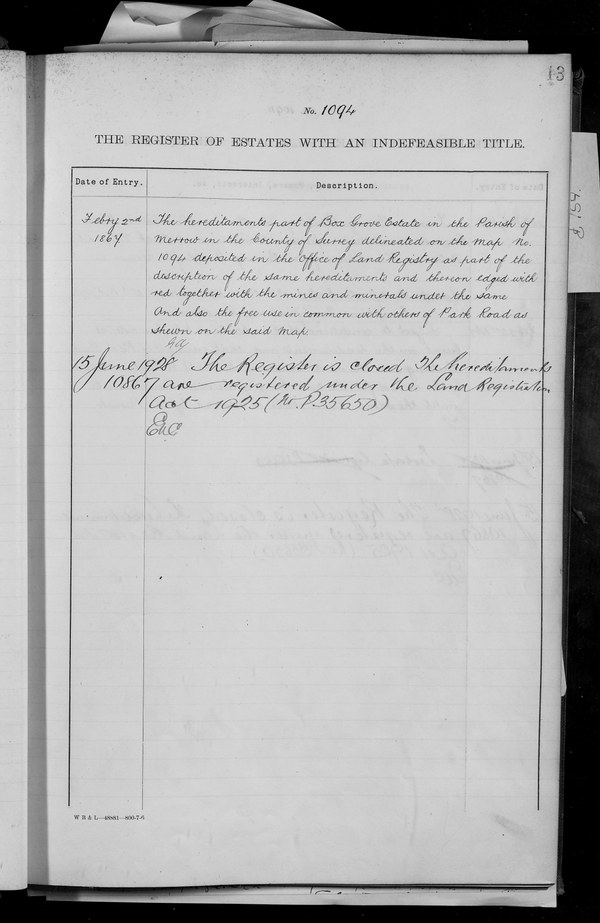 13
No. 1094
THE REGISTER OF ESTATES WITH AN INDEFEASIBLE TITLE.
Date of Entry.
Description.
Febry 2nd
1867
The hereditaments part of Box Grove Estate in the Parish of
Merrow in the County of Surrey delineated on the Map No.
1094 deposited in the Office of Land Registry as part of the
description of the same hereditaments and thereon edged with
red together with the mines and minerals under the same
And also the free use in common with others of Park Road as
shewn on the said Map
15 June 1928 The Register is closed The hereditaments
10867 are registered under the Land Registration
Act 1925 (No. P.35650)
W B & L—48861—800-7-6
P 151